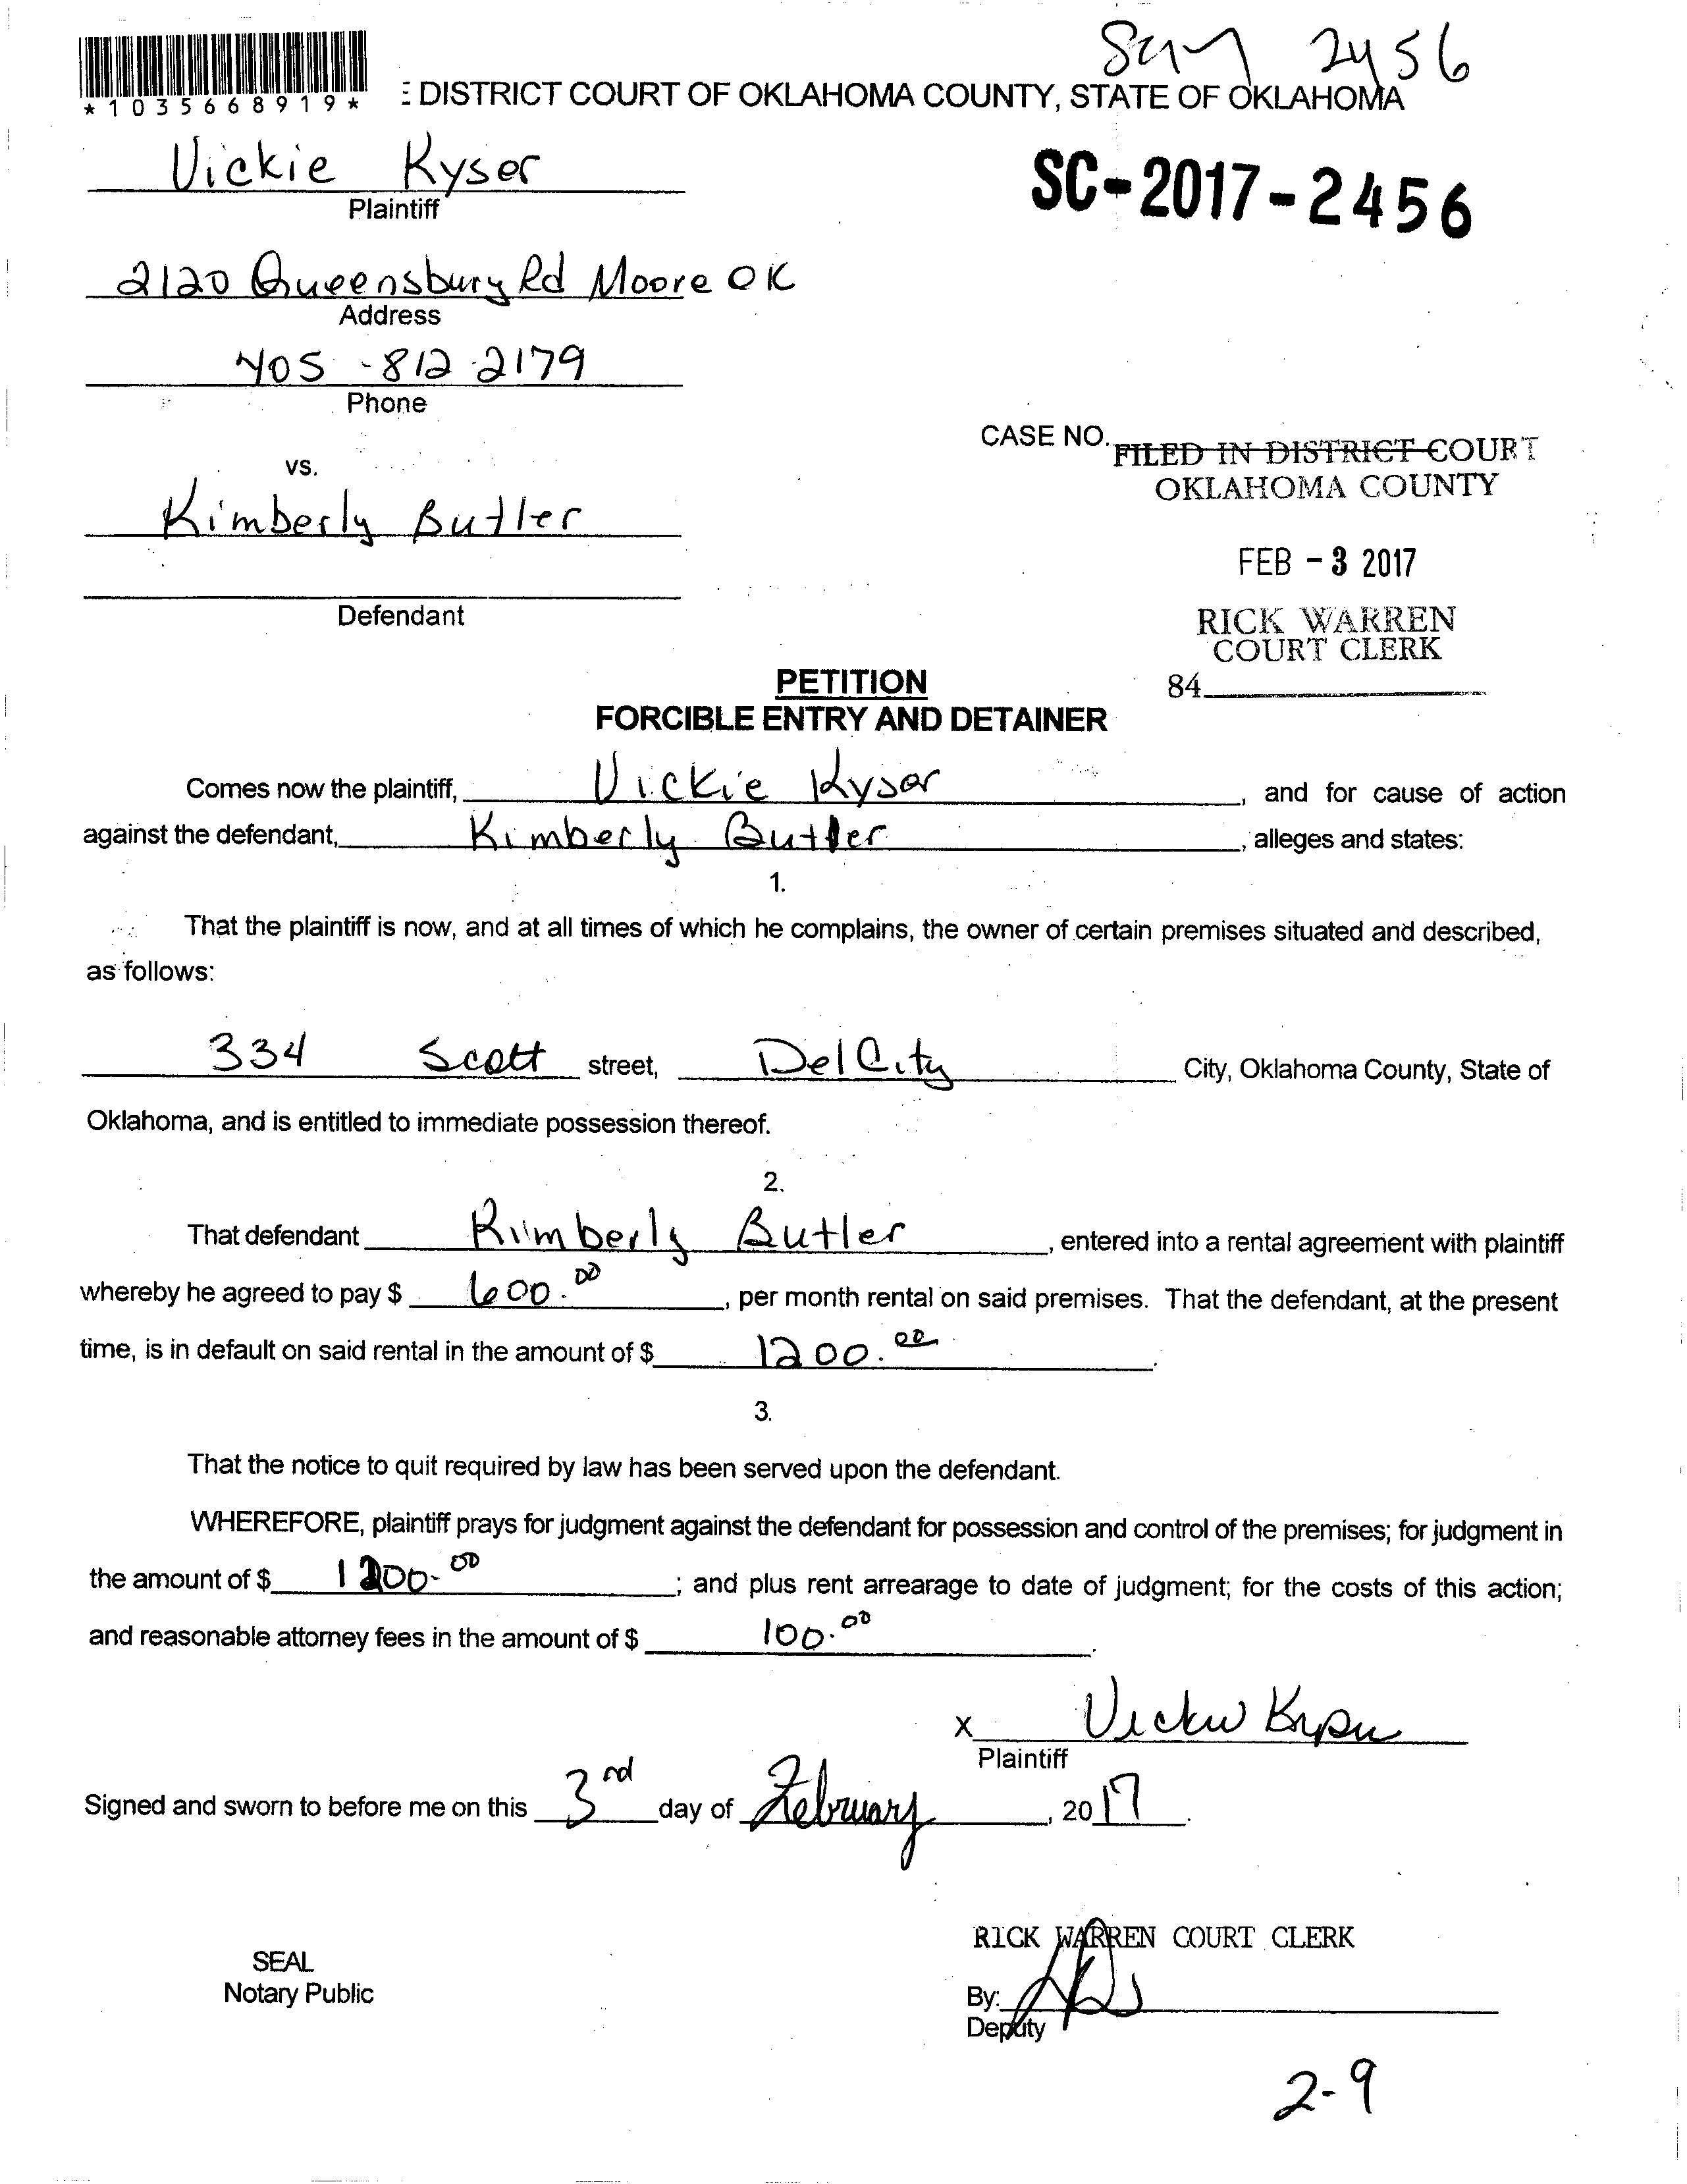 2456
*1035668919*
DISTRICT COURT OF OKLAHOMA COUNTY, STATE OF OKLAHOMA
Vickie Kyser
Plaintiff
SC-2017-2456
2120 Queensbury Rd Moore OK
Address
405-812-2179
Phone
CASE NO.
FILED IN DISTRICT COURT
OKLAHOMA COUNTY
vs.
Kimberly Butler
FEB - 3 2017
Defendant
RICK WARREN
COURT CLERK
84
PETITION
FORCIBLE ENTRY AND DETAINER
Comes now the plaintiff, Vickie Kyser, and for cause of action
against the defendant, Kimberly Butler, alleges and states:
1.
That the plaintiff is now, and at all times of which he complains, the owner of certain premises situated and described,
as follows:
334 Scott street, Del City City, Oklahoma County, State of
Oklahoma, and is entitled to immediate possession thereof.
2.
That defendant Kimberly Butler, entered into a rental agreement with plaintiff
whereby he agreed to pay $ 600.00, per month rental on said premises. That the defendant, at the present
time, is in default on said rental in the amount of $ 1200.00.
3.
That the notice to quit required by law has been served upon the defendant.
WHEREFORE, plaintiff prays for judgment against the defendant for possession and control of the premises; for judgment in
the amount of $ 1200.00; and plus rent arrearage to date of judgment; for the costs of this action;
and reasonable attorney fees in the amount of $ 100.00.
x Vickie Kyser
Plaintiff
Signed and sworn to before me on this 3rd day of February, 2017.
RICK WARREN COURT CLERK
SEAL
Notary Public
By:
Deputy
2-9